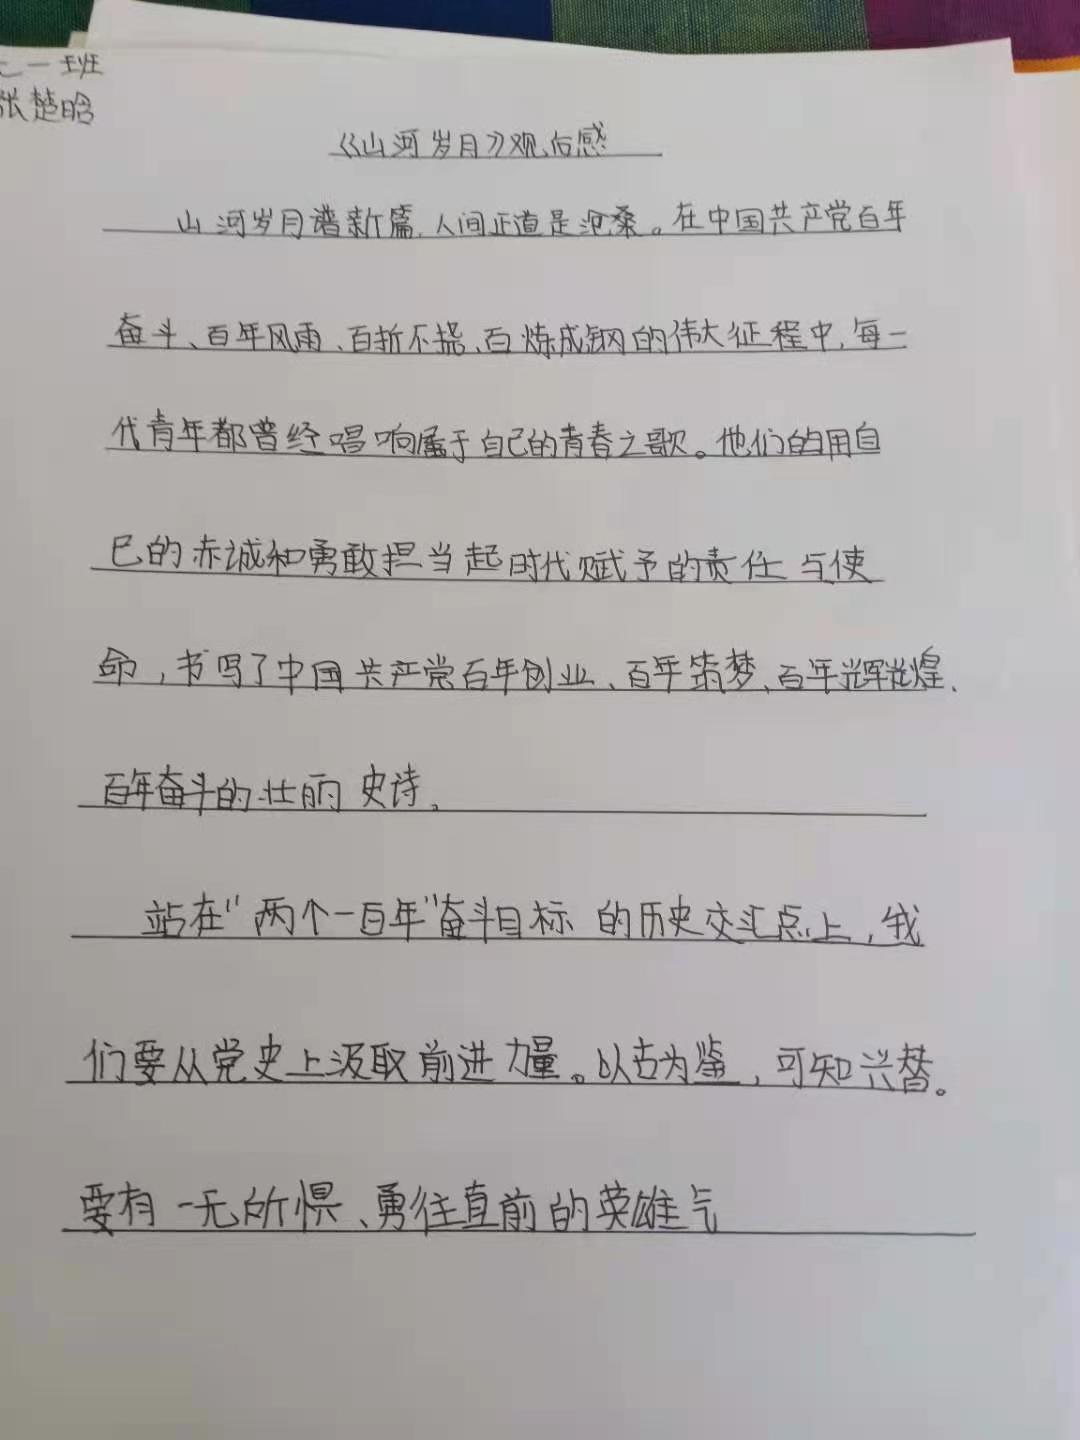 一班
张楚晗
《山河岁月》观后感
山河岁月谱新篇,人间正道是沧桑。在中国共产党百年
奋斗、百年风雨、百折不挠、百炼成钢的伟大征程中,每一
代青年都曾经唱响属于自己的青春之歌。他们的用自
已的赤诚和勇敢担当起时代赋予的责任与使
命,书写了中国共产党百年创业、百年筑梦、百年辉煌、
百年奋斗的壮丽史诗。
站在"两个一百年"奋斗目标的历史交汇点上,我
们要从党史上汲取前进力量。以古为鉴,可知兴替。
要有一无所惧、勇往直前的英雄气